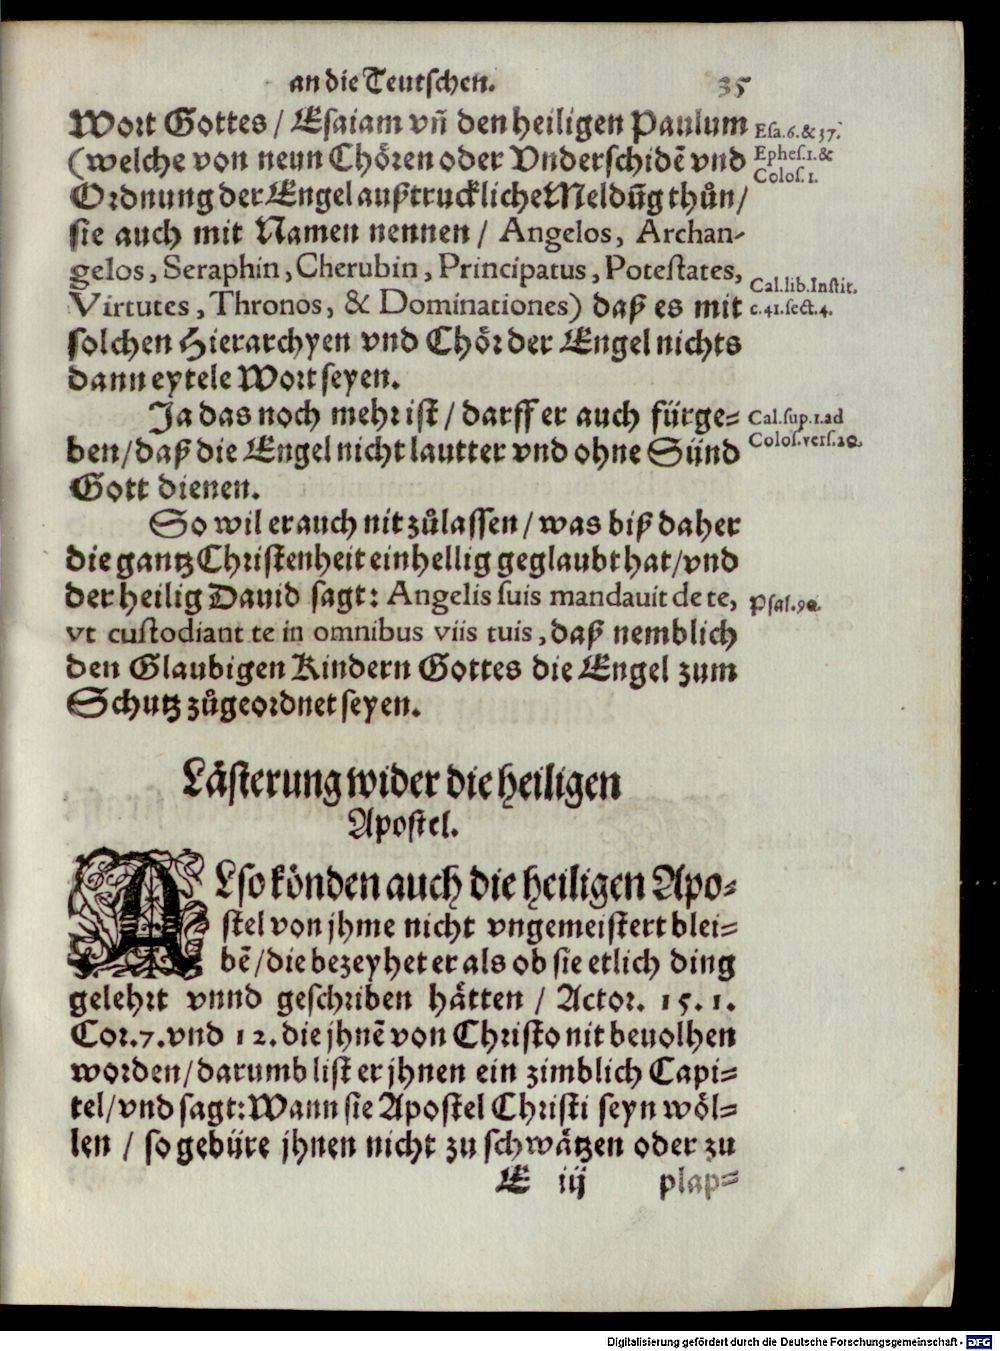 an die Teutschen. 35
Wort Gottes / Esaiam vñ den heiligen Paulum
Esa.6.&37.
(welche von neun Chören oder Vnderschidē vnd
Ephes.1.&
Colos.1.
Ordnung der Engel außtruckliche Meldūg thůn/
sie auch mit Namen nennen / Angelos, Archan-
gelos, Seraphin, Cherubin, Principatus, Potestates,
Cal.lib.Instit.
Virtutes, Thronos, & Dominationes) daß es mit
c.41.sect.4.
solchen Hierarchyen vnd Chör der Engel nichts
dann eytele Wort seyen.
Ja das noch mehr ist / darff er auch fürge=
Cal.sup.1.ad
ben/daß die Engel nicht lautter vnd ohne Sünd
Colos.vers.20.
Gott dienen.
So wil er auch nit zůlassen / was biß daher
die gantz Christenheit einhellig geglaubt hat/vnd
der heilig Dauid sagt: Angelis suis mandauit de te,
Psal.90.
vt custodiant te in omnibus viis tuis, daß nemblich
den Glaubigen Kindern Gottes die Engel zum
Schutz zůgeordnet seyen.
Lästerung wider die heiligen
Apostel.
ALso könden auch die heiligen Apo=
stel von jhme nicht vngemeistert blei=
bē/die bezeyhet er als ob sie etlich ding
gelehrt vnnd geschriben hätten / Actor. 15. 1.
Cor.7.vnd 12.die jhnē von Christo nit beuolhen
worden/darumb list er jhnen ein zimblich Capi=
tel/vnd sagt:Wann sie Apostel Christi seyn wöl=
len / so gebüre jhnen nicht zu schwätzen oder zu
E iij plap=
Digitalisierung gefördert durch die Deutsche Forschungsgemeinschaft - DFG